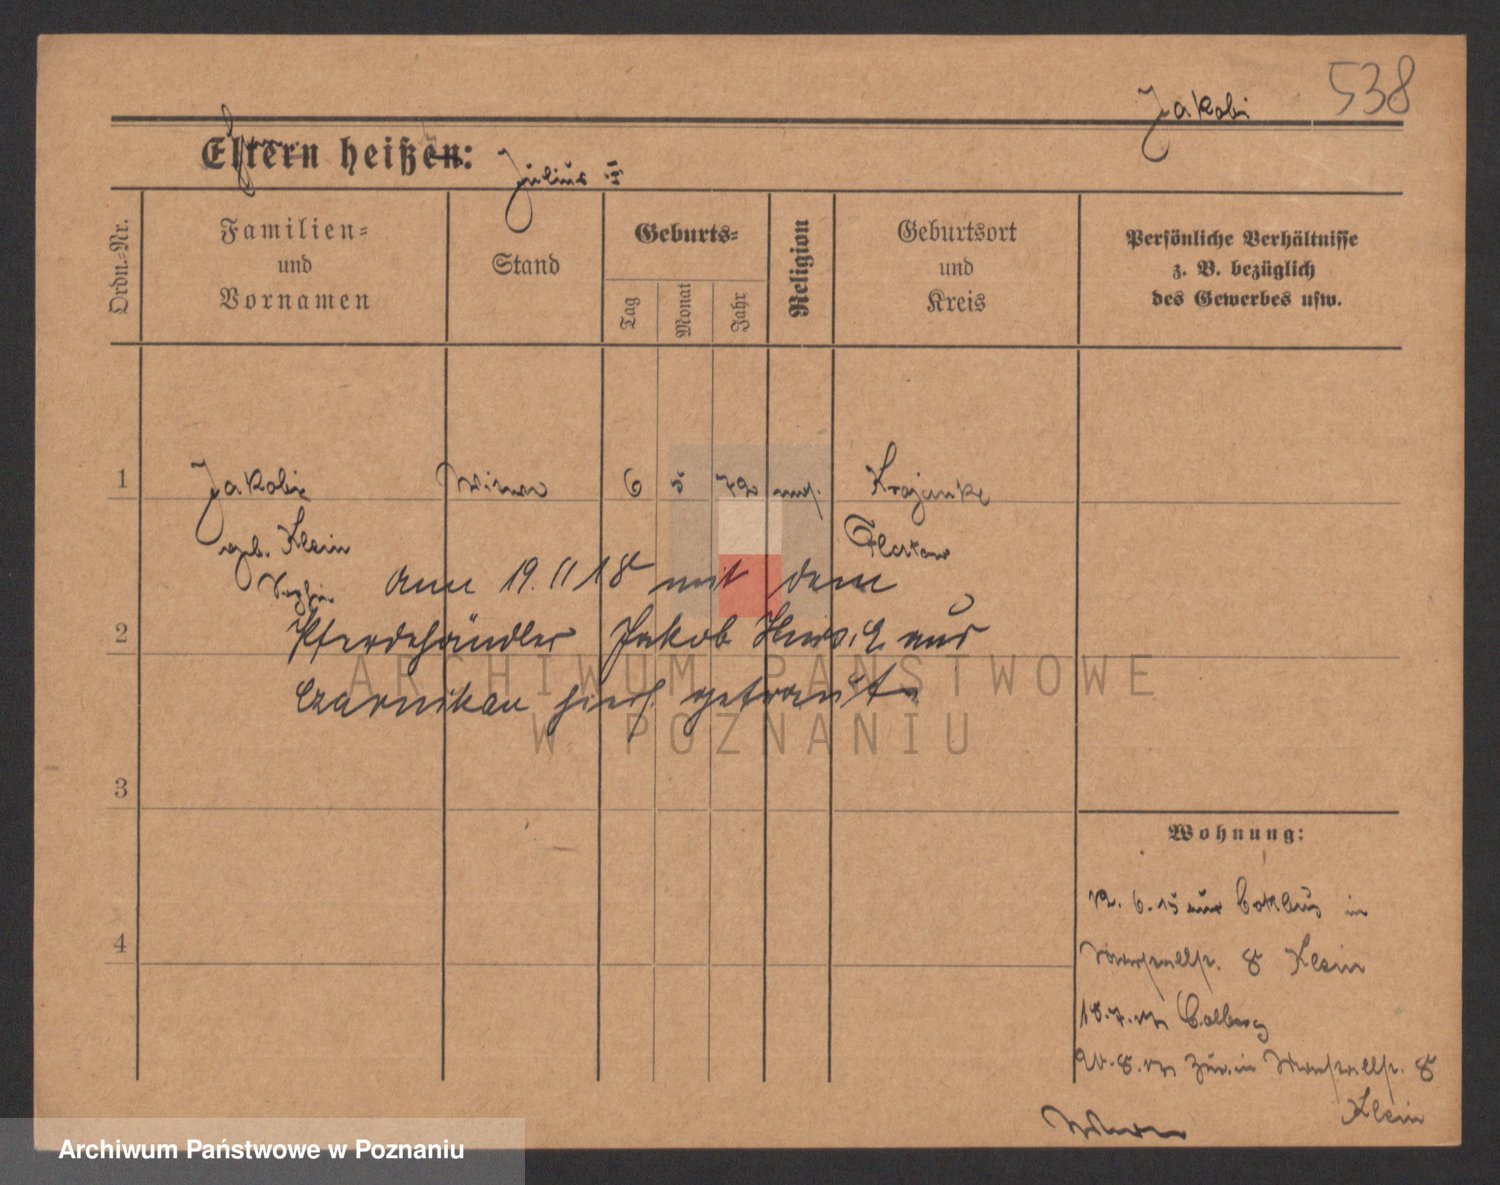 538
Jakobi
Eltern heißen:
Julius I
Ordn.-Nr.
Familien=
und
Vornamen
Stand
Geburts=
Tag
Monat
Jahr
Religion
Geburtsort
und
Kreis
Persönliche Verhältnisse
z. B. bezüglich
des Gewerbes usw.
1
Jakobi Witwe 6 5 72 mos. Krojanke
geb. Klein Flatow
am 19. 11 18 mit dem
2
Pferdehändler Jakob Hirsch aus
Czarnikau hier getraut.
ARCHIWUM PAŃSTWOWE
W POZNANIU
3
4
Wohnung:
12. 6. 15 aus Cottbus in
8 Klein
18.7. Colberg
8. zur. in 8
Klein
Archiwum Państwowe w Poznaniu